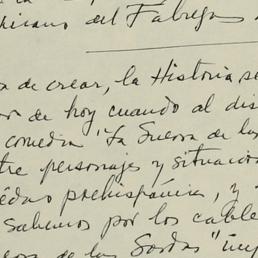 del Fabregas
de crear, la Historia se
de hoy cuando al dis
comedia "La Guerra de las
tre personajes y situacio
prehispánica, y
Sabemos por los cable
de las Gordas"